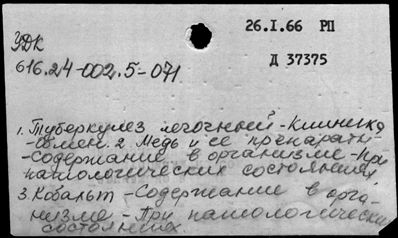 26.I.66 РП
УДК
Д 37375
616.24-002.5-071
1. Туберкулез легочный - Клиника
- Обмен. 2. Медь и ее препараты
- Содержание в организме - При
патологических состояниях
3. Кобальт - Содержание в орга-
низме - При патологических
состояниях.